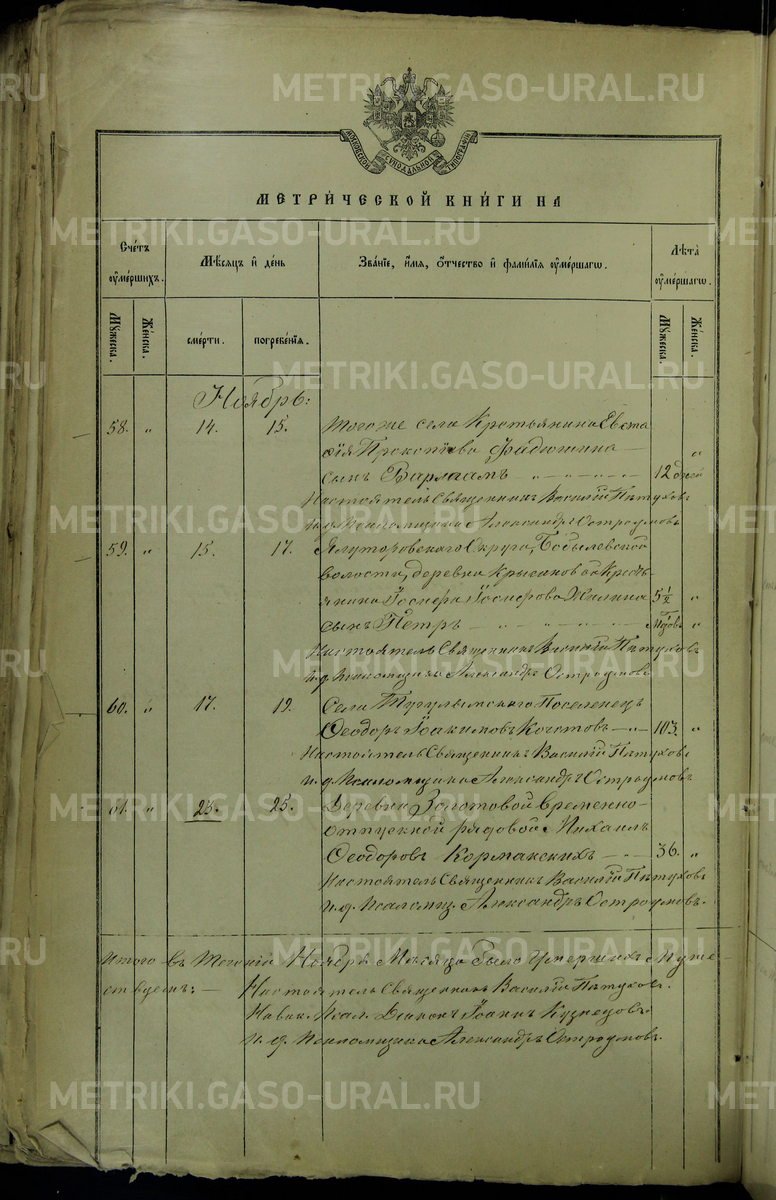 METRIKI.GASO-URAL.RU
МОСКОВСКОЙ СѴНОДАЛЬНОЙ ТИПОГРАФІИ
МЕТРИ́ЧЕСКОЙ КНИ́ГИ НА
Сче́тъ ᲂу҆ме́ршихъ.
Мѣ́сѧцъ и҆ де́нь
Зва́нїе, и҆́мѧ, ѻ҆́тчество и҆ фами́лїѧ ᲂу҆ме́ршагѡ.
Лѣ́та ᲂу҆ме́ршагѡ.
Мꙋ́жеска.
Же́нска.
сме́рти.
погребе́нїѧ.
Мꙋ́жеска.
Же́нска.
Ноябрь:
58. „ 14. 15. Того же села Крестьянина Евста
фія Прокопіева
сынъ Варлаамъ 12 дней „
Настоятель Священникъ Василій Пѣтуховъ
и. д. Псаломщика Александръ Остроумовъ
59. „ 15. 17. Ялуторовскаго Округа,
волости, деревни Кресть
янина Іосифа Іосифова 5½ „
сынъ Петръ „
Настоятель Священникъ Василій Пѣтуховъ
и. д. Псаломщика Александръ Остроумовъ
60. „ 17. 19. Села Тугулымскаго Поселенецъ
Ѳеодоръ Іоакимовъ 103. „
Настоятель Священникъ Василій Пѣтуховъ
и. д. Псаломщика Александръ Остроумовъ
61. „ 23. 25. Деревни Золотовой временно-
отпускной рядовой Михаилъ
Ѳеодоровъ Кормакскихъ 36. „
Настоятель Священникъ Василій Пѣтуховъ
и. д. Псаломщ. Александръ Остроумовъ.
Итого въ теченіи Ноября Мѣсяца было умершихъ муже-
Настоятель Священникъ Василій Пѣтуховъ.
Діаконъ Іоаннъ Кузнецовъ.
и. д. Псаломщика Александръ Остроумовъ.